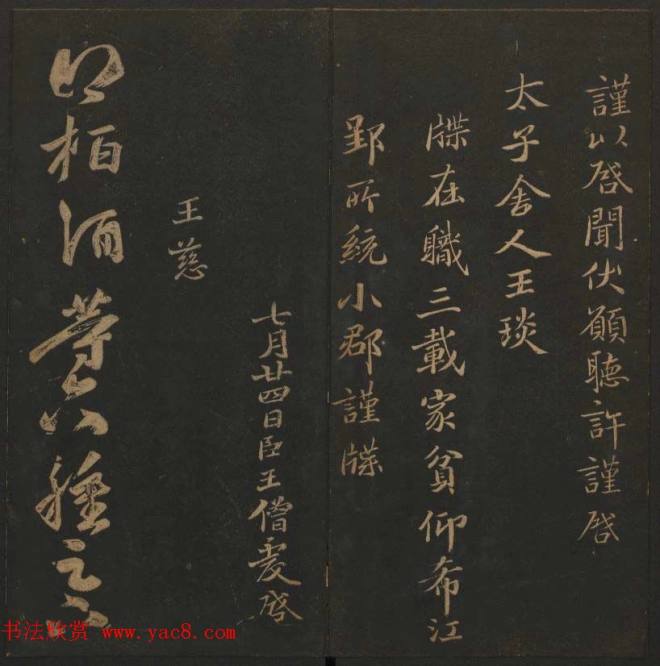 謹以啓聞伏願聽許謹啓
太子舍人王琰
牒在職三載家貧仰希江
郢所統小郡謹牒
七月廿四日臣王僧虔啓
王慈
得柏酒等六種足下
书法欣赏 www.yac8.com